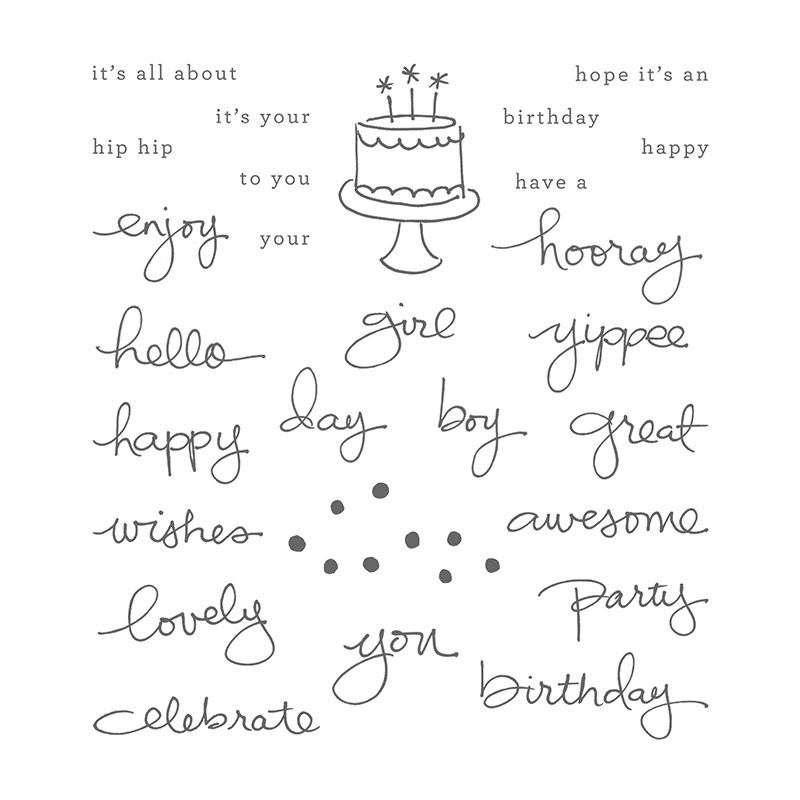 it's all about
hope it's an
it's your
birthday
hip hip
happy
to you
have a
enjoy
your
hooray
girl
yippee
hello
day
boy
great
happy
awesome
wishes
party
lovely
you
birthday
celebrate